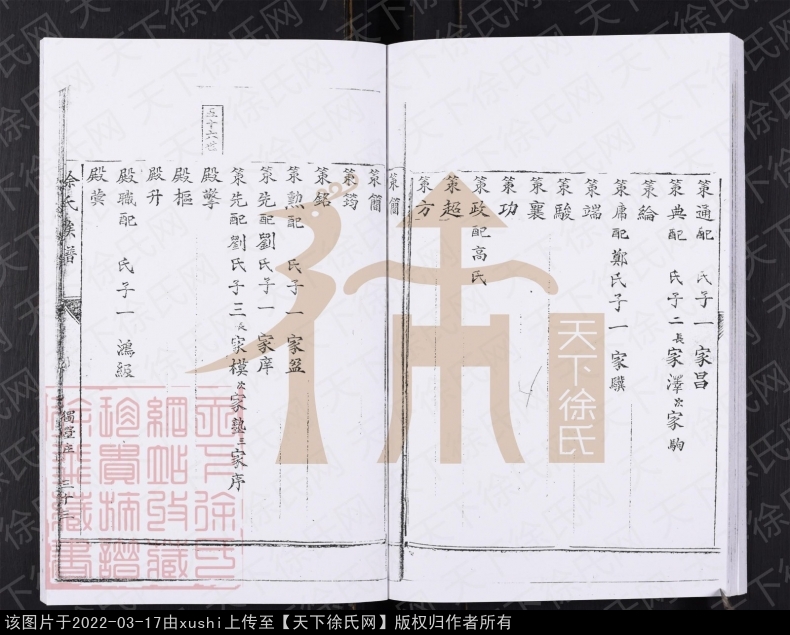 策通配 氏子一家昌
策典配 氏子二長家澤次家駒
策綸
策庸配鄭氏子一家驥
策端
策駿
策襄
策功
策政配高氏
策超
策方
策簡
五十六世
策簡
策筠
策銘
策勲配 氏子一家盈
策尭配劉氏子一家庠
策先配劉氏子三長家模次家塾三家序
殿擎
殿樞
殿升
殿職配 氏子一鴻級
殿黌
徐氏族譜
三十三
天下徐氏
该图片于2022-03-17由xushi上传至【天下徐氏网】版权归作者所有